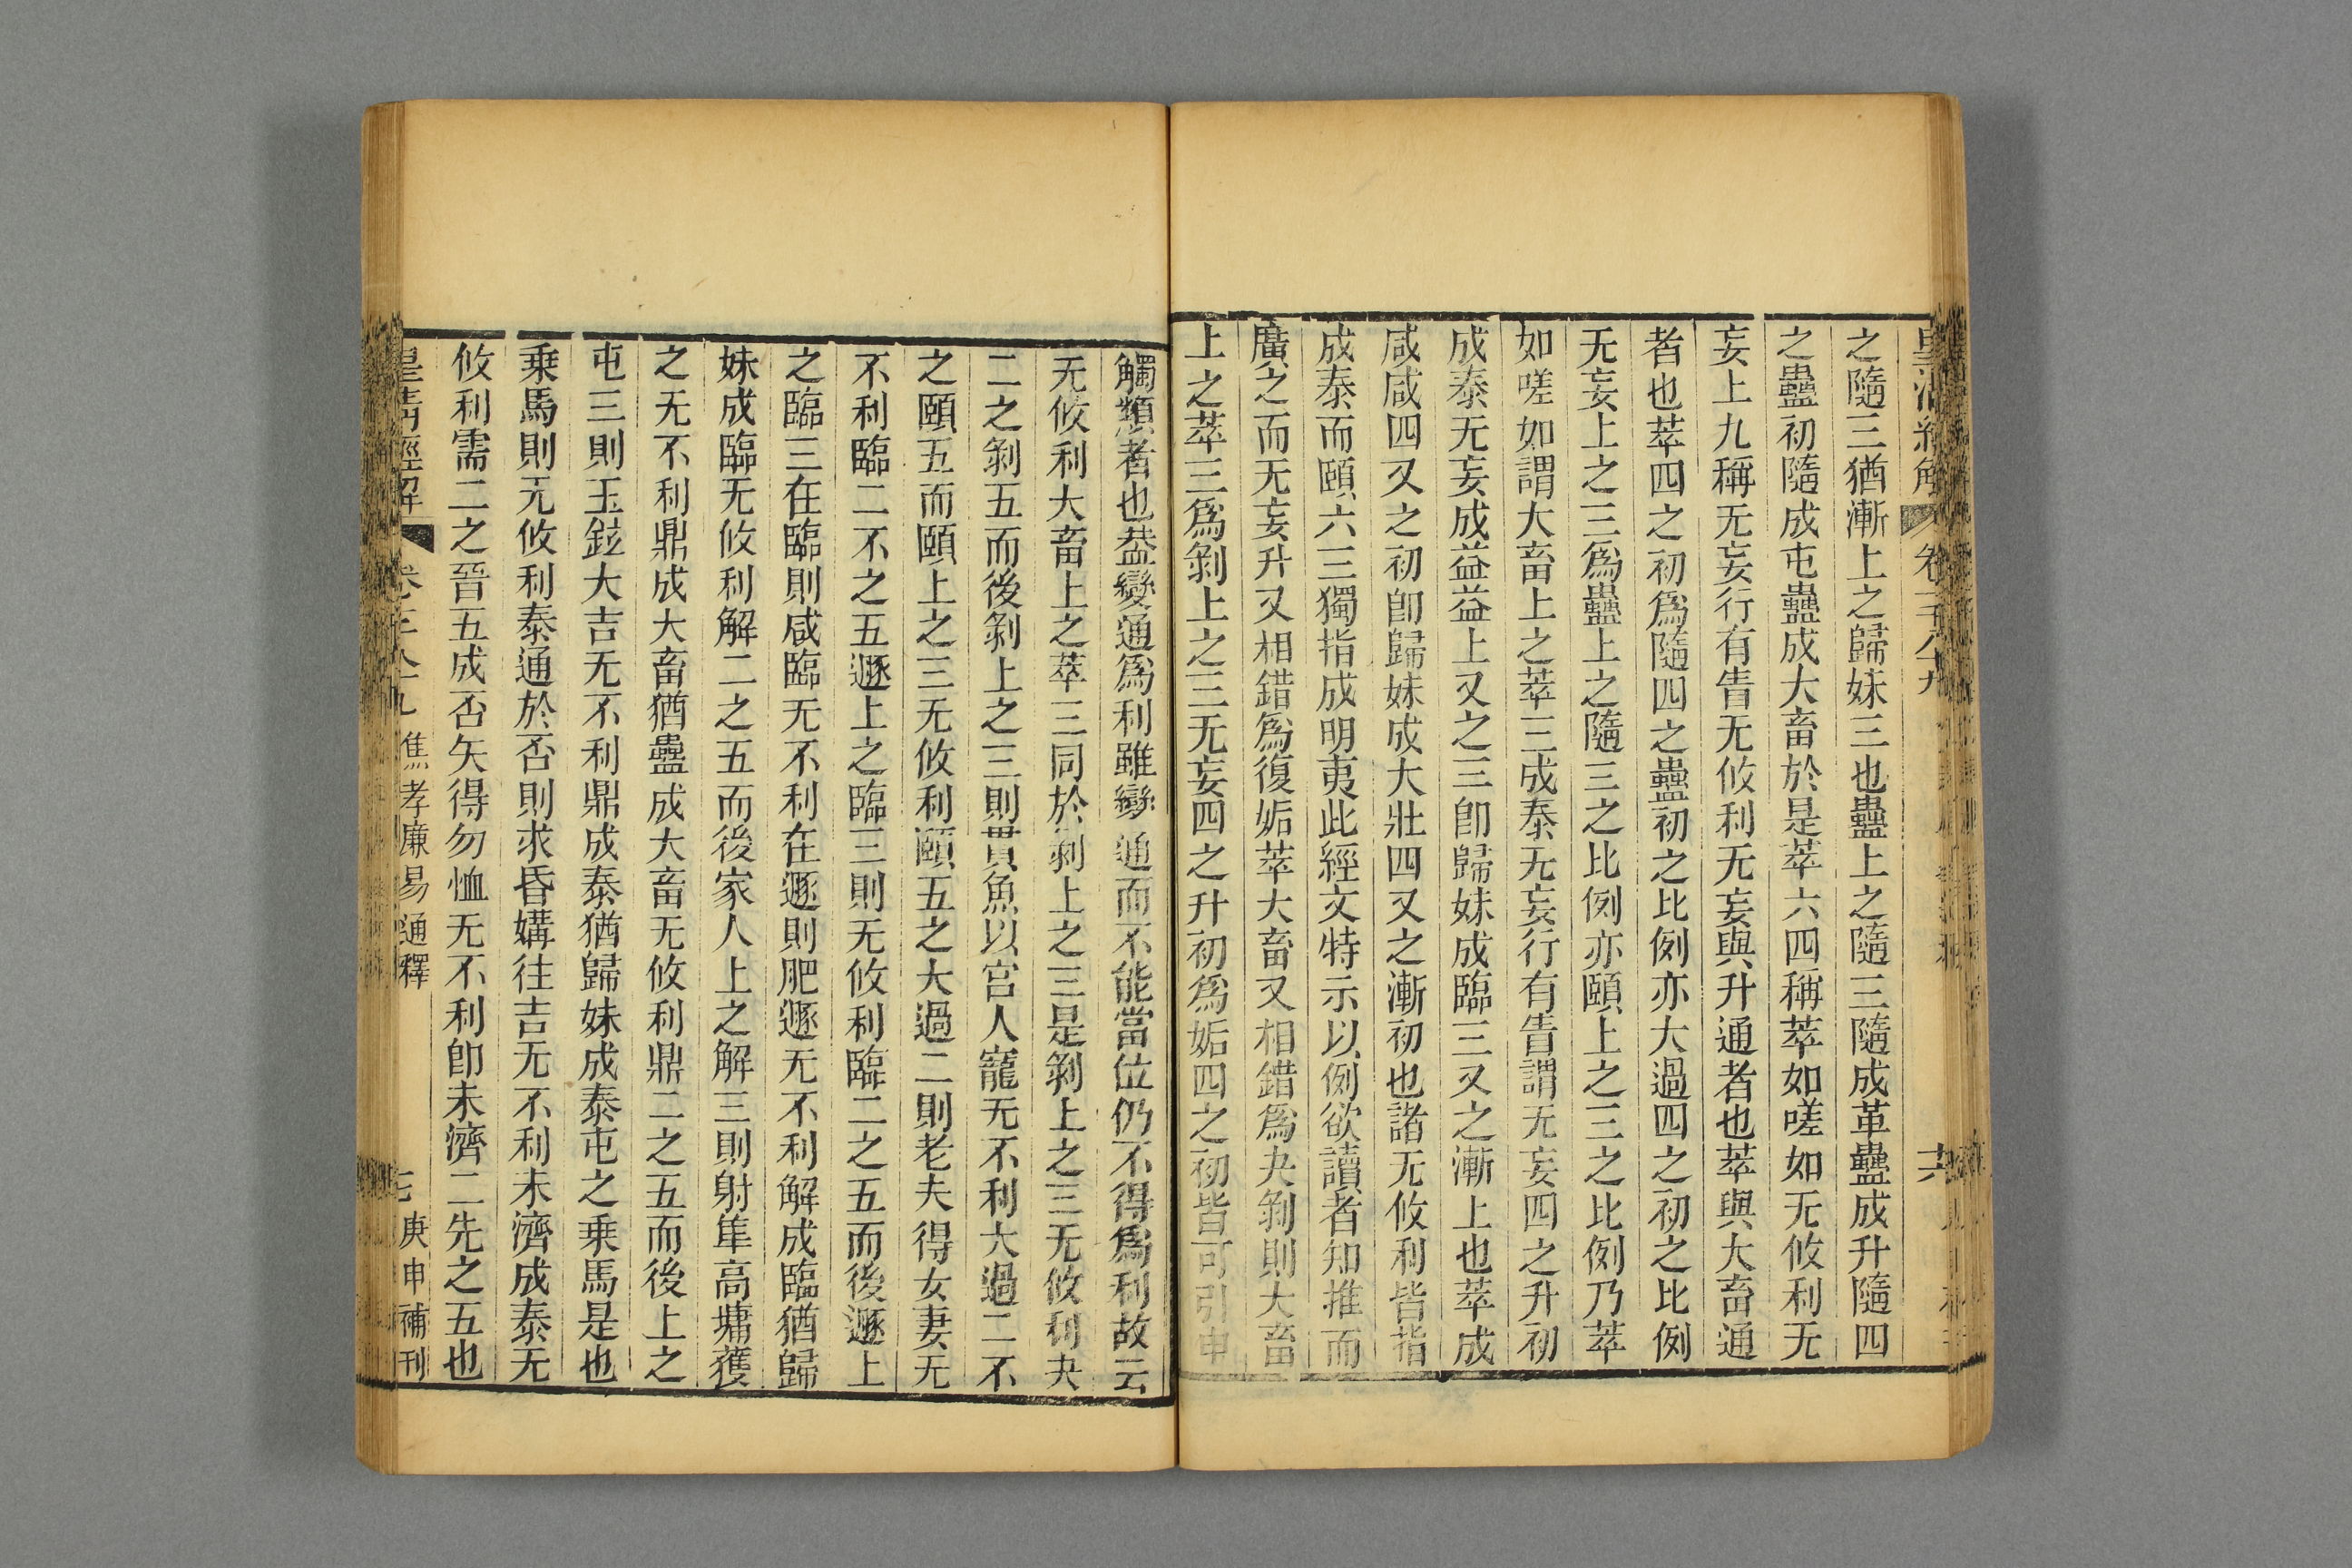 皇清經解 卷千八十九 十六
之隨三猶漸上之歸妹三也蠱上之隨三隨成革蠱成升隨四
之蠱初隨成屯蠱成大畜於是萃六四稱萃如嗟如无攸利无
妄上九稱无妄行有眚无攸利无妄與升通者也萃與大畜通
者也萃四之初爲隨四之蠱初之比例亦大過四之初之比例
无妄上之三爲蠱上之隨三之比例亦頤上之三之比例乃萃
如嗟如謂大畜上之萃三成泰无妄行有眚謂无妄四之升初
成泰无妄成益益上又之三卽歸妹成臨三又之漸上也萃成
咸咸四又之初卽歸妹成大壯四又之漸初也諸无攸利皆指
成泰而頤六三獨指成明夷此經文特示以例欲讀者知推而
廣之而无妄升又相錯爲復姤萃大畜又相錯爲夬剝則大畜
上之萃三爲剝上之三无妄四之升初爲姤四之初皆可引申
觸類者也葢變通爲利雖變通而不能當位仍不得爲利故云
无攸利大畜上之萃三同於剝上之三是剝上之三无攸利夬
二之剝五而後剝上之三則貫魚以宮人寵无不利大過二不
之頤五而頤上之三无攸利頤五之大過二則老夫得女妻无
不利臨二不之五遯上之臨三則无攸利臨二之五而後遯上
之臨三在臨則咸臨无不利在遯則肥遯无不利解成臨猶歸
妹成臨无攸利解二之五而後家人上之解三則射隼高墉獲
之无不利鼎成大畜猶蠱成大畜无攸利鼎二之五而後上之
屯三則玉鉉大吉无不利鼎成泰猶歸妹成泰屯之乗馬是也
乗馬則无攸利泰通於否則求昏媾往吉无不利未濟成泰无
攸利需二之晉五成否矢得勿恤无不利卽未濟二先之五也
皇淸經解 卷千八十九 焦孝廉易通釋 七 庚申補刊